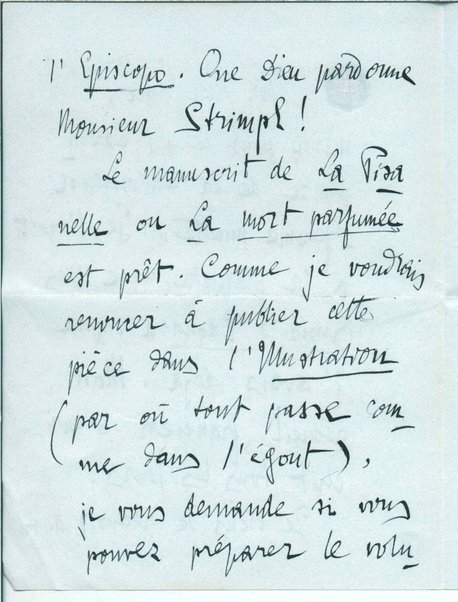 l'Episcopo. Que Dieu pardonne
Monsieur Strimpl!
Le manuscrit de La Pisa
nelle ou La mort parfumée
est prêt. Comme je voudrais
renoncer à publier cette
pièce dans l'Illustration
(par où tout passe com
me dans l'égout),
je vous demande si vous
pouvez préparer le volu